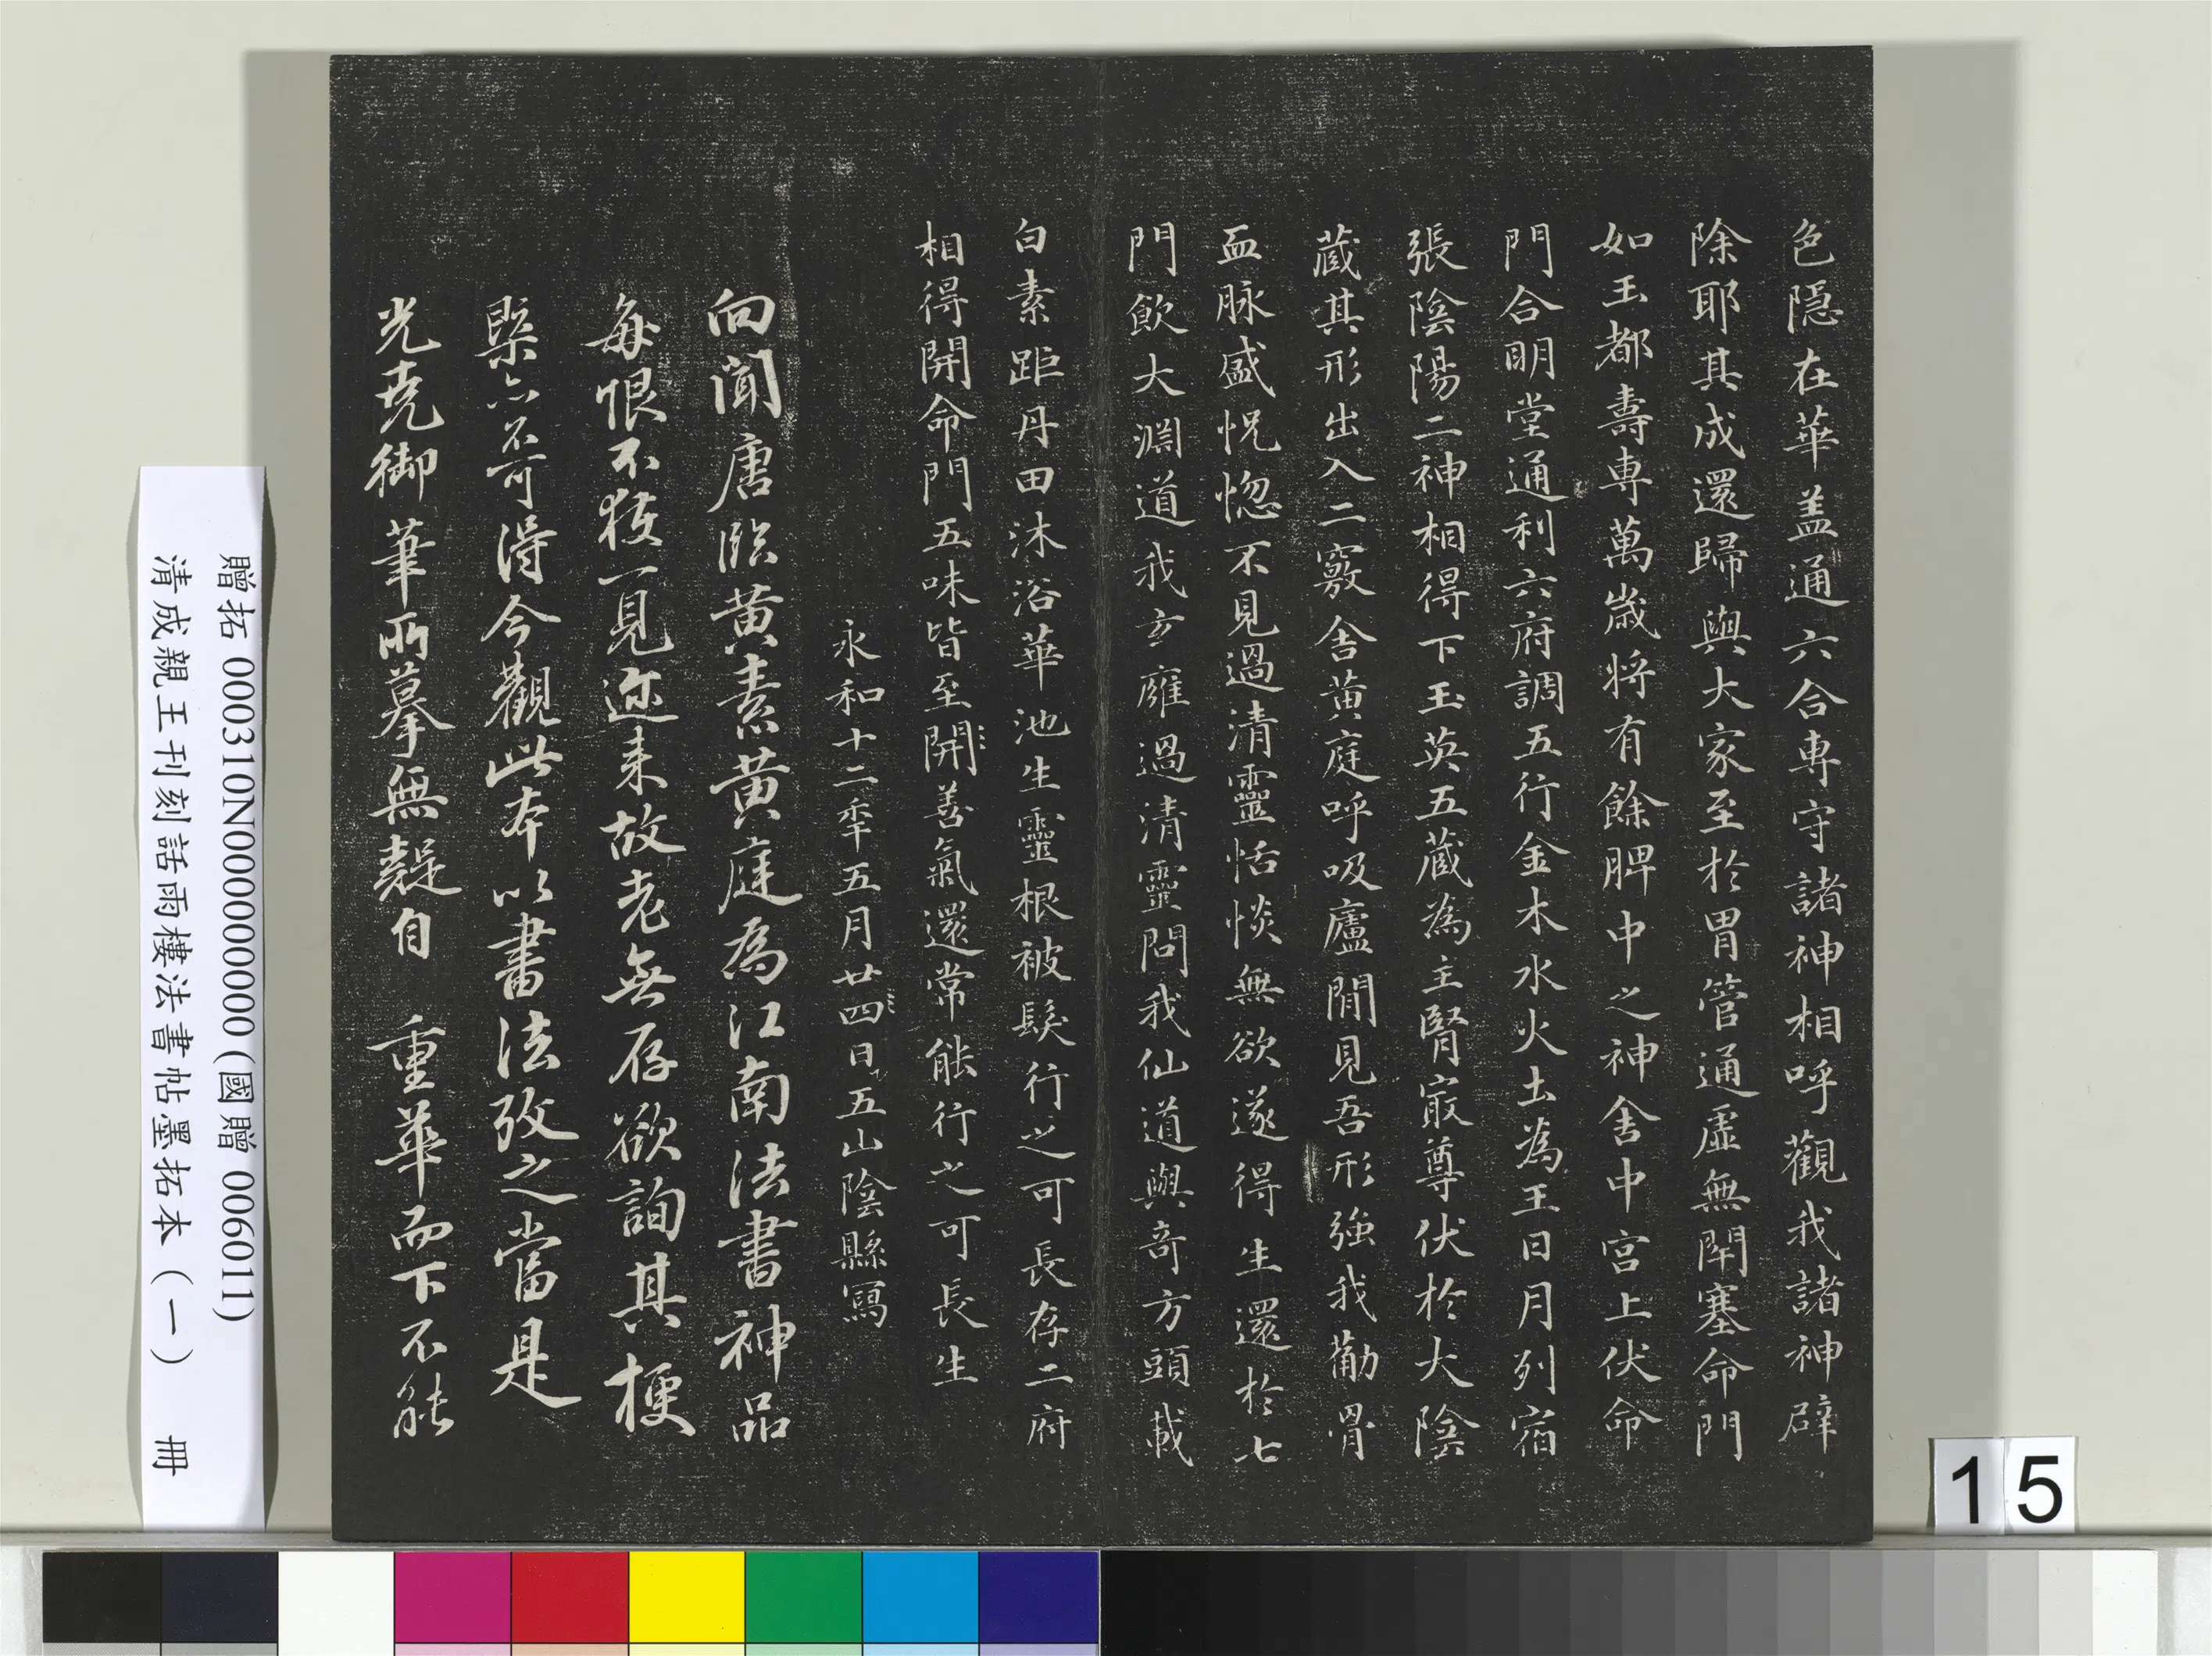 色隱在華盖通六合專守諸神相呼觀我諸神辟
除耶其成還歸與大家至於胃管通虛無閉塞命門
如玉都壽專萬歲將有餘脾中之神舍中宮上伏命
門合明堂通利六府調五行金木水火土為王日月列宿
張陰陽二神相得下玉英五藏為主腎㝡尊伏於大陰
藏其形出入二竅舍黄庭呼吸廬間見吾形強我勸骨
血脉盛怳惚不見過清靈恬惔無欲遂得生還於七
門飲大淵道我玄廱過清靈問我仙道與奇方頭載
白素距丹田沐浴華池生靈根被髮行之可長存二府
相得開命門五味皆至開善氣還常能行之可長生
永和十二年五月廿四日五山陰縣寫
向聞唐臨黄素黄庭為江南法書神品
每恨不獲一見迩来故老無存欲詢其梗
槩亦不可得今觀此本以書法攷之當是
光堯御筆所摹無疑自 重華而下不能
贈拓 000310N000000000 (國贈 006011)
清成親王刊刻詒雨樓法書帖墨拓本(一) 冊
15